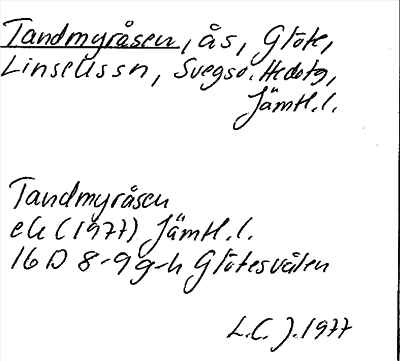 Tandmyråsen, ås, Glöte,
Linsellssn, Svegs o. Hedetg,
Jämtl. l.
Tandmyråsen
ek (1977) Jämtl. l.
16 D 8-9 g-h Glötesvålen
L.C. J. 1977